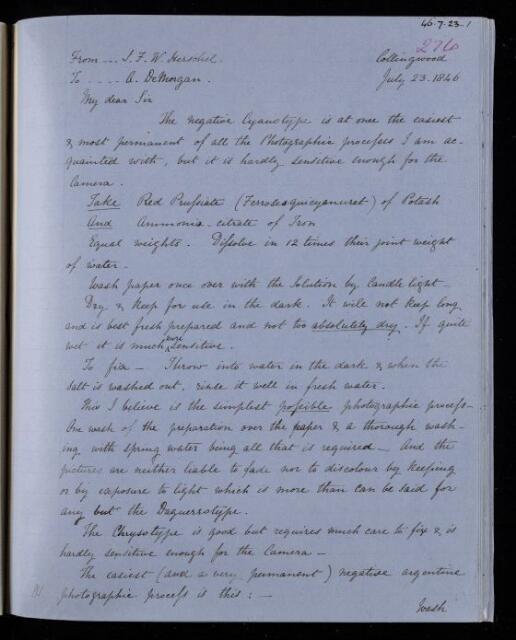 46.7.23.1
276
From --- J. F. W. Herschel.
Collingwood
To ---- A. DeMorgan.
July 23. 1846
My dear Sir
The negative Cyanotype is at once the easiest
& most permanent of all the Photographic processes I am ac-
quainted with, but it is hardly sensitive enough for the
Camera.
Take Red Prussiate (Ferrosesquicyanuret) of Potash
And Ammonia-citrate of Iron
Equal weights. Dissolve in 12 times their joint weight
of water.
Wash paper once over with the Solution by Candle light -
Dry & keep for use in the dark. It will not keep long
and is best fresh prepared and not too absolutely dry. If quite
wet it is much more sensitive.
To fix - Throw into water in the dark & when the
salt is washed out, rinse it well in fresh water.
This I believe is the simplest possible photographic process -
One wash of the preparation over the paper & a thorough wash-
ing with spring water being all that is required - And the
pictures are neither liable to fade nor to discolour by keeping
or by exposure to light which is more than can be said for
any but the Daguerrotype.
The Chrysotype is good but requires much care to fix & is
hardly sensitive enough for the Camera -
The easiest (and a very permanent) negative argentine
photographic process is this : -
Wash